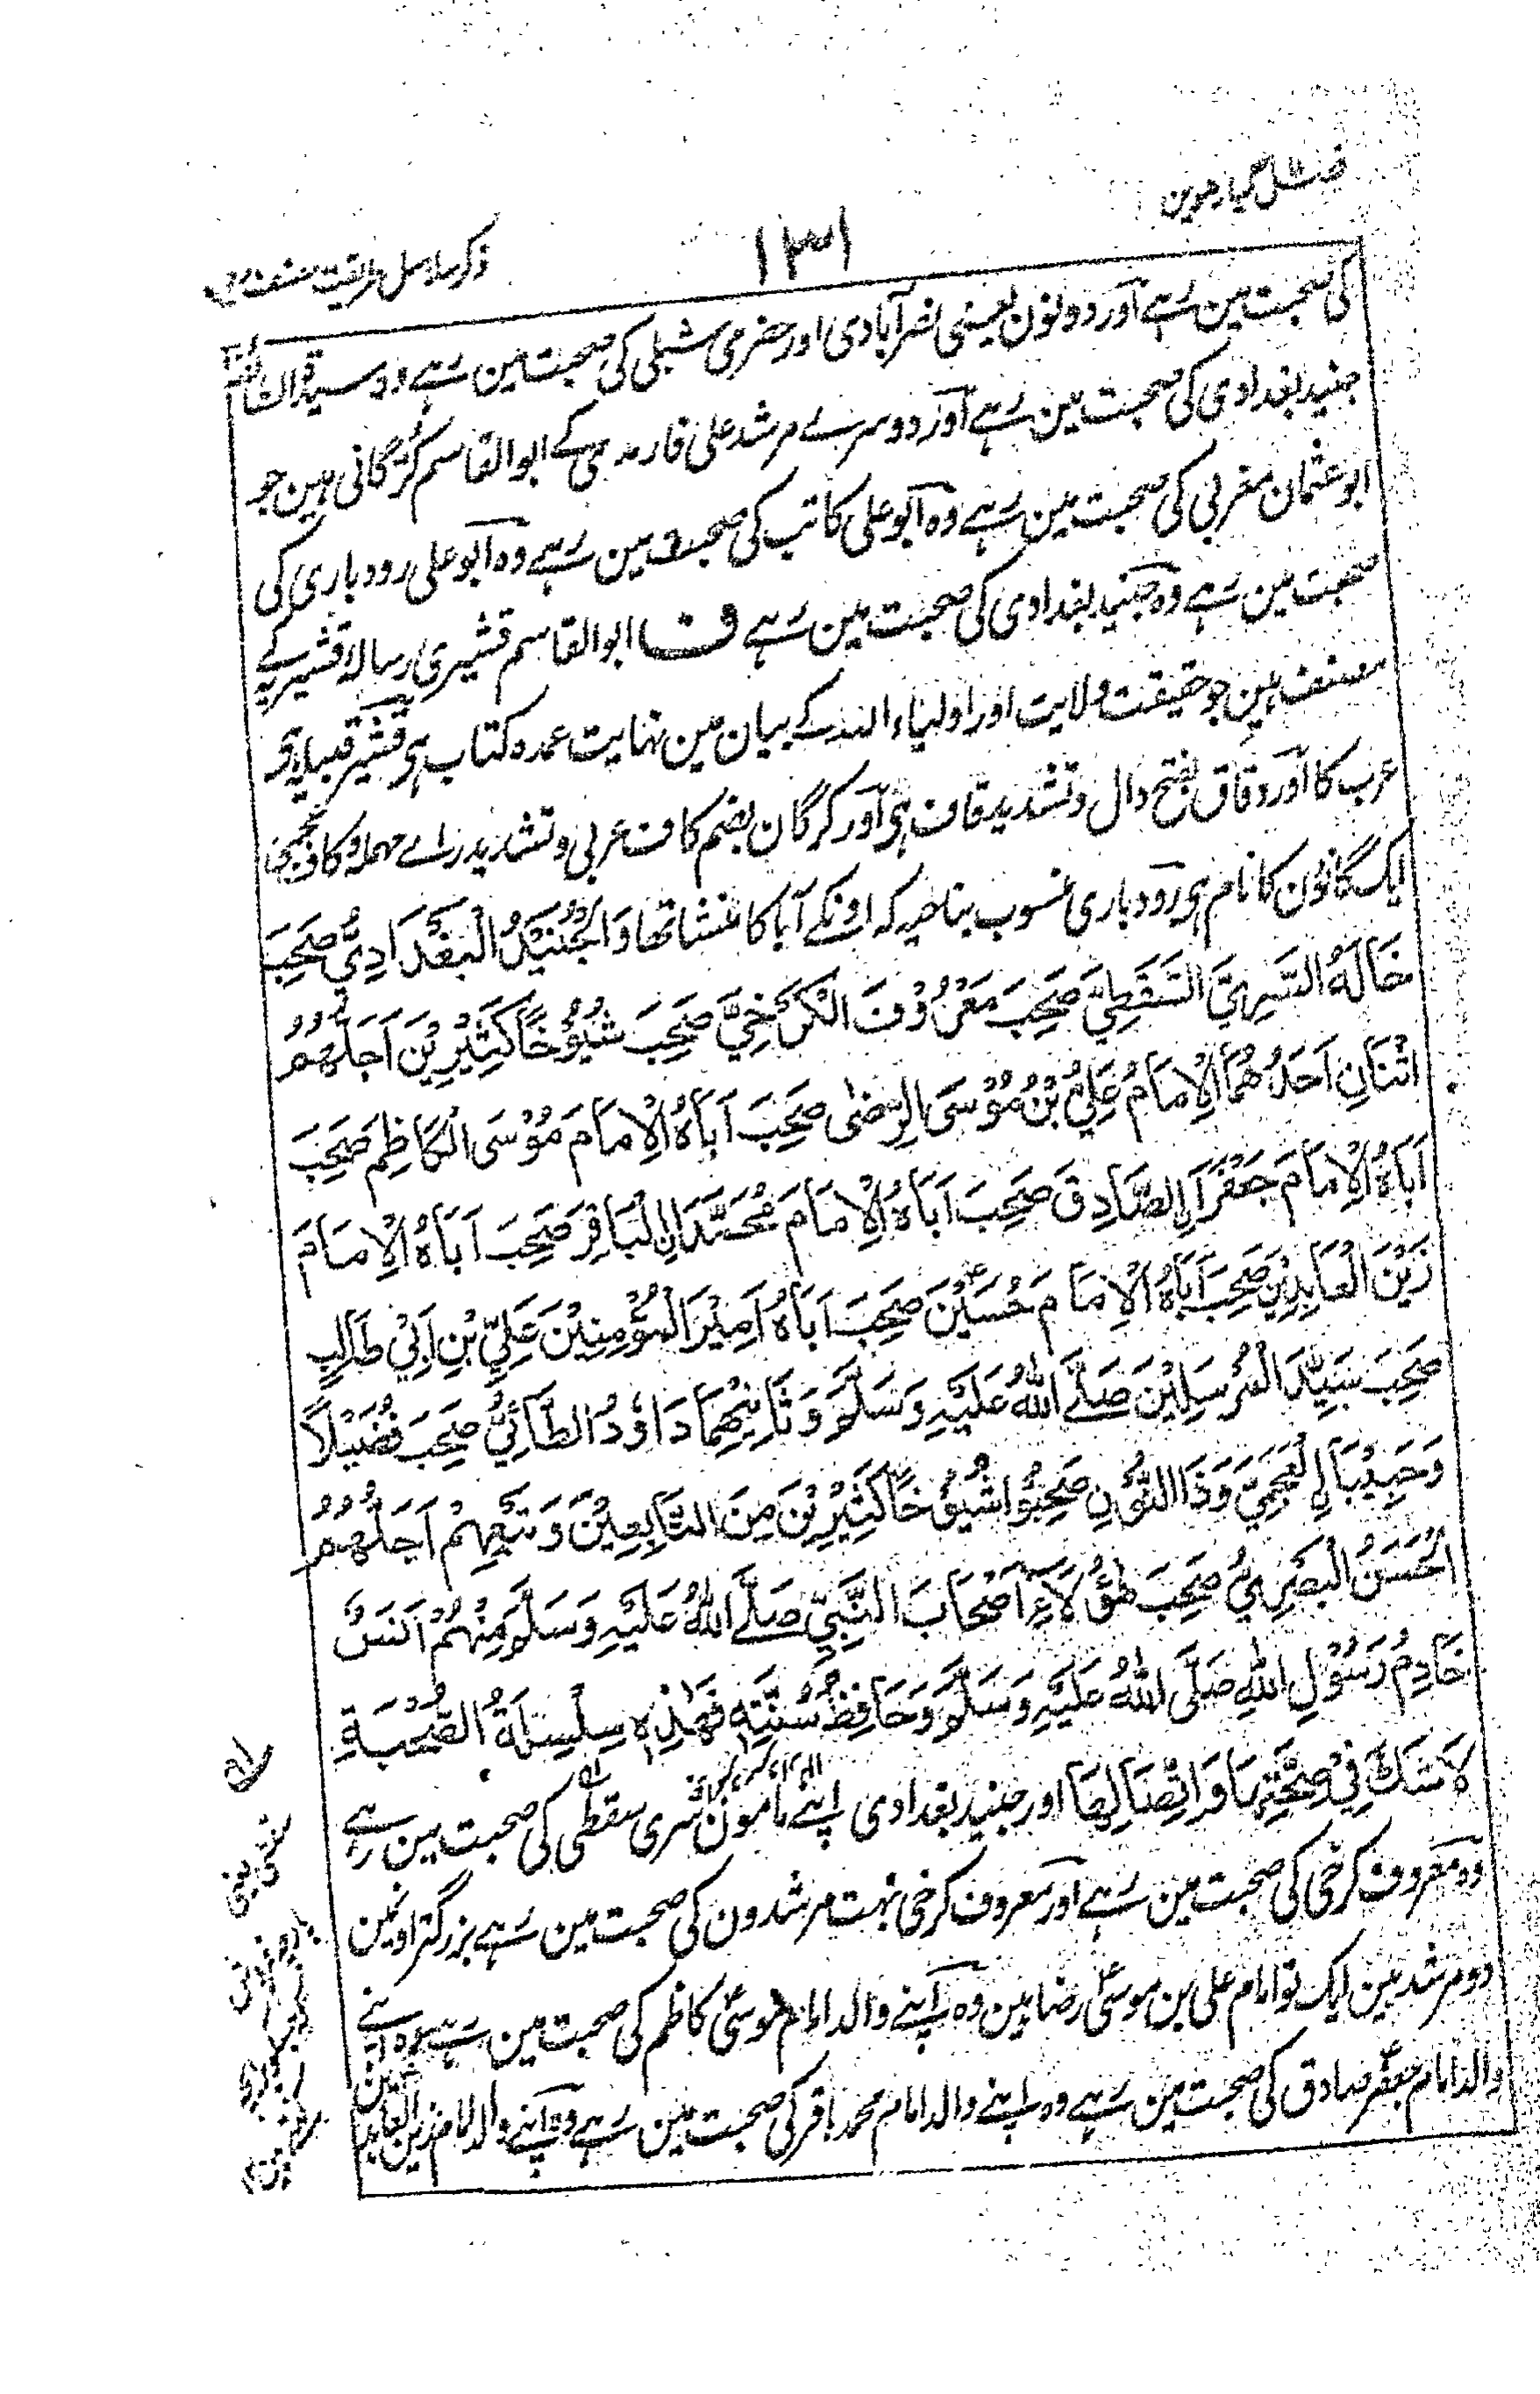 فصل گیارھوین
۱۳۱
ذکر سلاسل طریقت مصنف
کی صحبت مین رہے اور دونون یعنی نصرآبادی اور حضرمی شبلی کی صحبت مین رہے وہ سید
جنید بغدادی کی صحبت مین رہے اور دوسرے مرشد علی فارمدی کے ابو القاسم کُرّگانی ہین جو
ابو عثمان مغربی کی صحبت مین رہے وہ ابو علی کاتب کی صحبت مین رہے وہ ابو علی رودباری کی
صحبت مین رہے وہ جنید بغدادی کی صحبت مین رہے ف ابو القاسم قشیری رسالہ قشیریہ کے
مصنف ہین جو حقیقت ولایت اور اولیاء اللہ کے بیان مین نہایت عمدہ کتاب ہی قشیر قبیلہ ہی
عرب کا اور دقاق بفتح دال و تشدید قاف ہی اور کرگان بضم کاف عربی و تشدید راے مہملہ و کاف عجمی
ایک گانؤن کا نام ہی رودباری منسوب بناحیہ کہ اونکے آبا کا منشا تھا وَالْجُنَيْدُ الْبَغْدَادِيُّ صَحِبَ
خَالَهُ السَّرِيَّ السَّقَطِيَّ صَحِبَ مَعْرُوْفَ الْكَرْخِيَّ صَحِبَ شُيُوْخًا كَثِيْرِيْنَ اَجَلُّهُمُ
اثْنَانِ اَحَدُهُمَا الْاِمَامُ عَلِيُّ بْنُ مُوْسَى الرِّضٰى صَحِبَ اَبَاهُ الْاِمَامَ مُوْسَى الْكَاظِمَ صَحِبَ
اَبَاهُ الْاِمَامَ جَعْفَرًا الصَّادِقَ صَحِبَ اَبَاهُ الْاِمَامَ مُحَمَّدَ الْبَاقِرَ صَحِبَ اَبَاهُ الْاِمَامَ
زَيْنَ الْعَابِدِيْنَ صَحِبَ اَبَاهُ الْاِمَامَ حُسَيْنَ صَحِبَ اَبَاهُ اَمِيْرَ الْمُؤْمِنِيْنَ عَلِيَّ بْنِ اَبِيْ طَالِبٍ
صَحِبَ سَيِّدَ الْمُرْسَلِيْنَ صَلَّى اللهُ عَلَيْهِ وَسَلَّمَ وَثَانِيْهِمَا دَاوٗدُ الطَّائِيُّ صَحِبَ فُضَيْلًا
وَحَبِيْبَا لِلْعَجَمِيِّ وَذَا النُّوْنِ صَحِبُوْا شُيُوْخًا كَثِيْرِيْنَ مِنَ التَّابِعِيْنَ وَتَبَعِهِمْ اَجَلُّهُمُ
الْحَسَنُ الْبَصَرِيُّ صَحِبَ هٰؤُلَاءِ اَصْحَابَ النَّبِيِّ صَلَّى اللهُ عَلَيْهِ وَسَلَّمَ مِنْهُمْ اَنَسٌ
خَادِمُ رَسُوْلِ اللهِ صَلَّى اللهُ عَلَيْهِ وَسَلَّمَ وَحَافِظُ سُنَّتِهٖ فَهٰذِهٖ سِلْسِلَةُ الصُّحْبَةِ
لَا شَكَّ فِيْ صِحَّتِهَا وَاتِّصَالِهَا اور جنید بغدادی اپنے مامون سری سقطی کی صحبت مین رہے
وہ معروف کرخی کی صحبت مین رہے اور معروف کرخی بہت مرشدون کی صحبت مین رہے بزرگتر اونمین
دو مرشد ہین ایک تو امام علی بن موسیٰ رضا ہین وہ اپنے والد امام موسیٰ کاظم کی صحبت مین رہے وہ اپنے
والد امام جعفر صادق کی صحبت مین رہے وہ اپنے والد امام محمد باقر کی صحبت مین رہے وہ اپنے والد امام زین العابدین